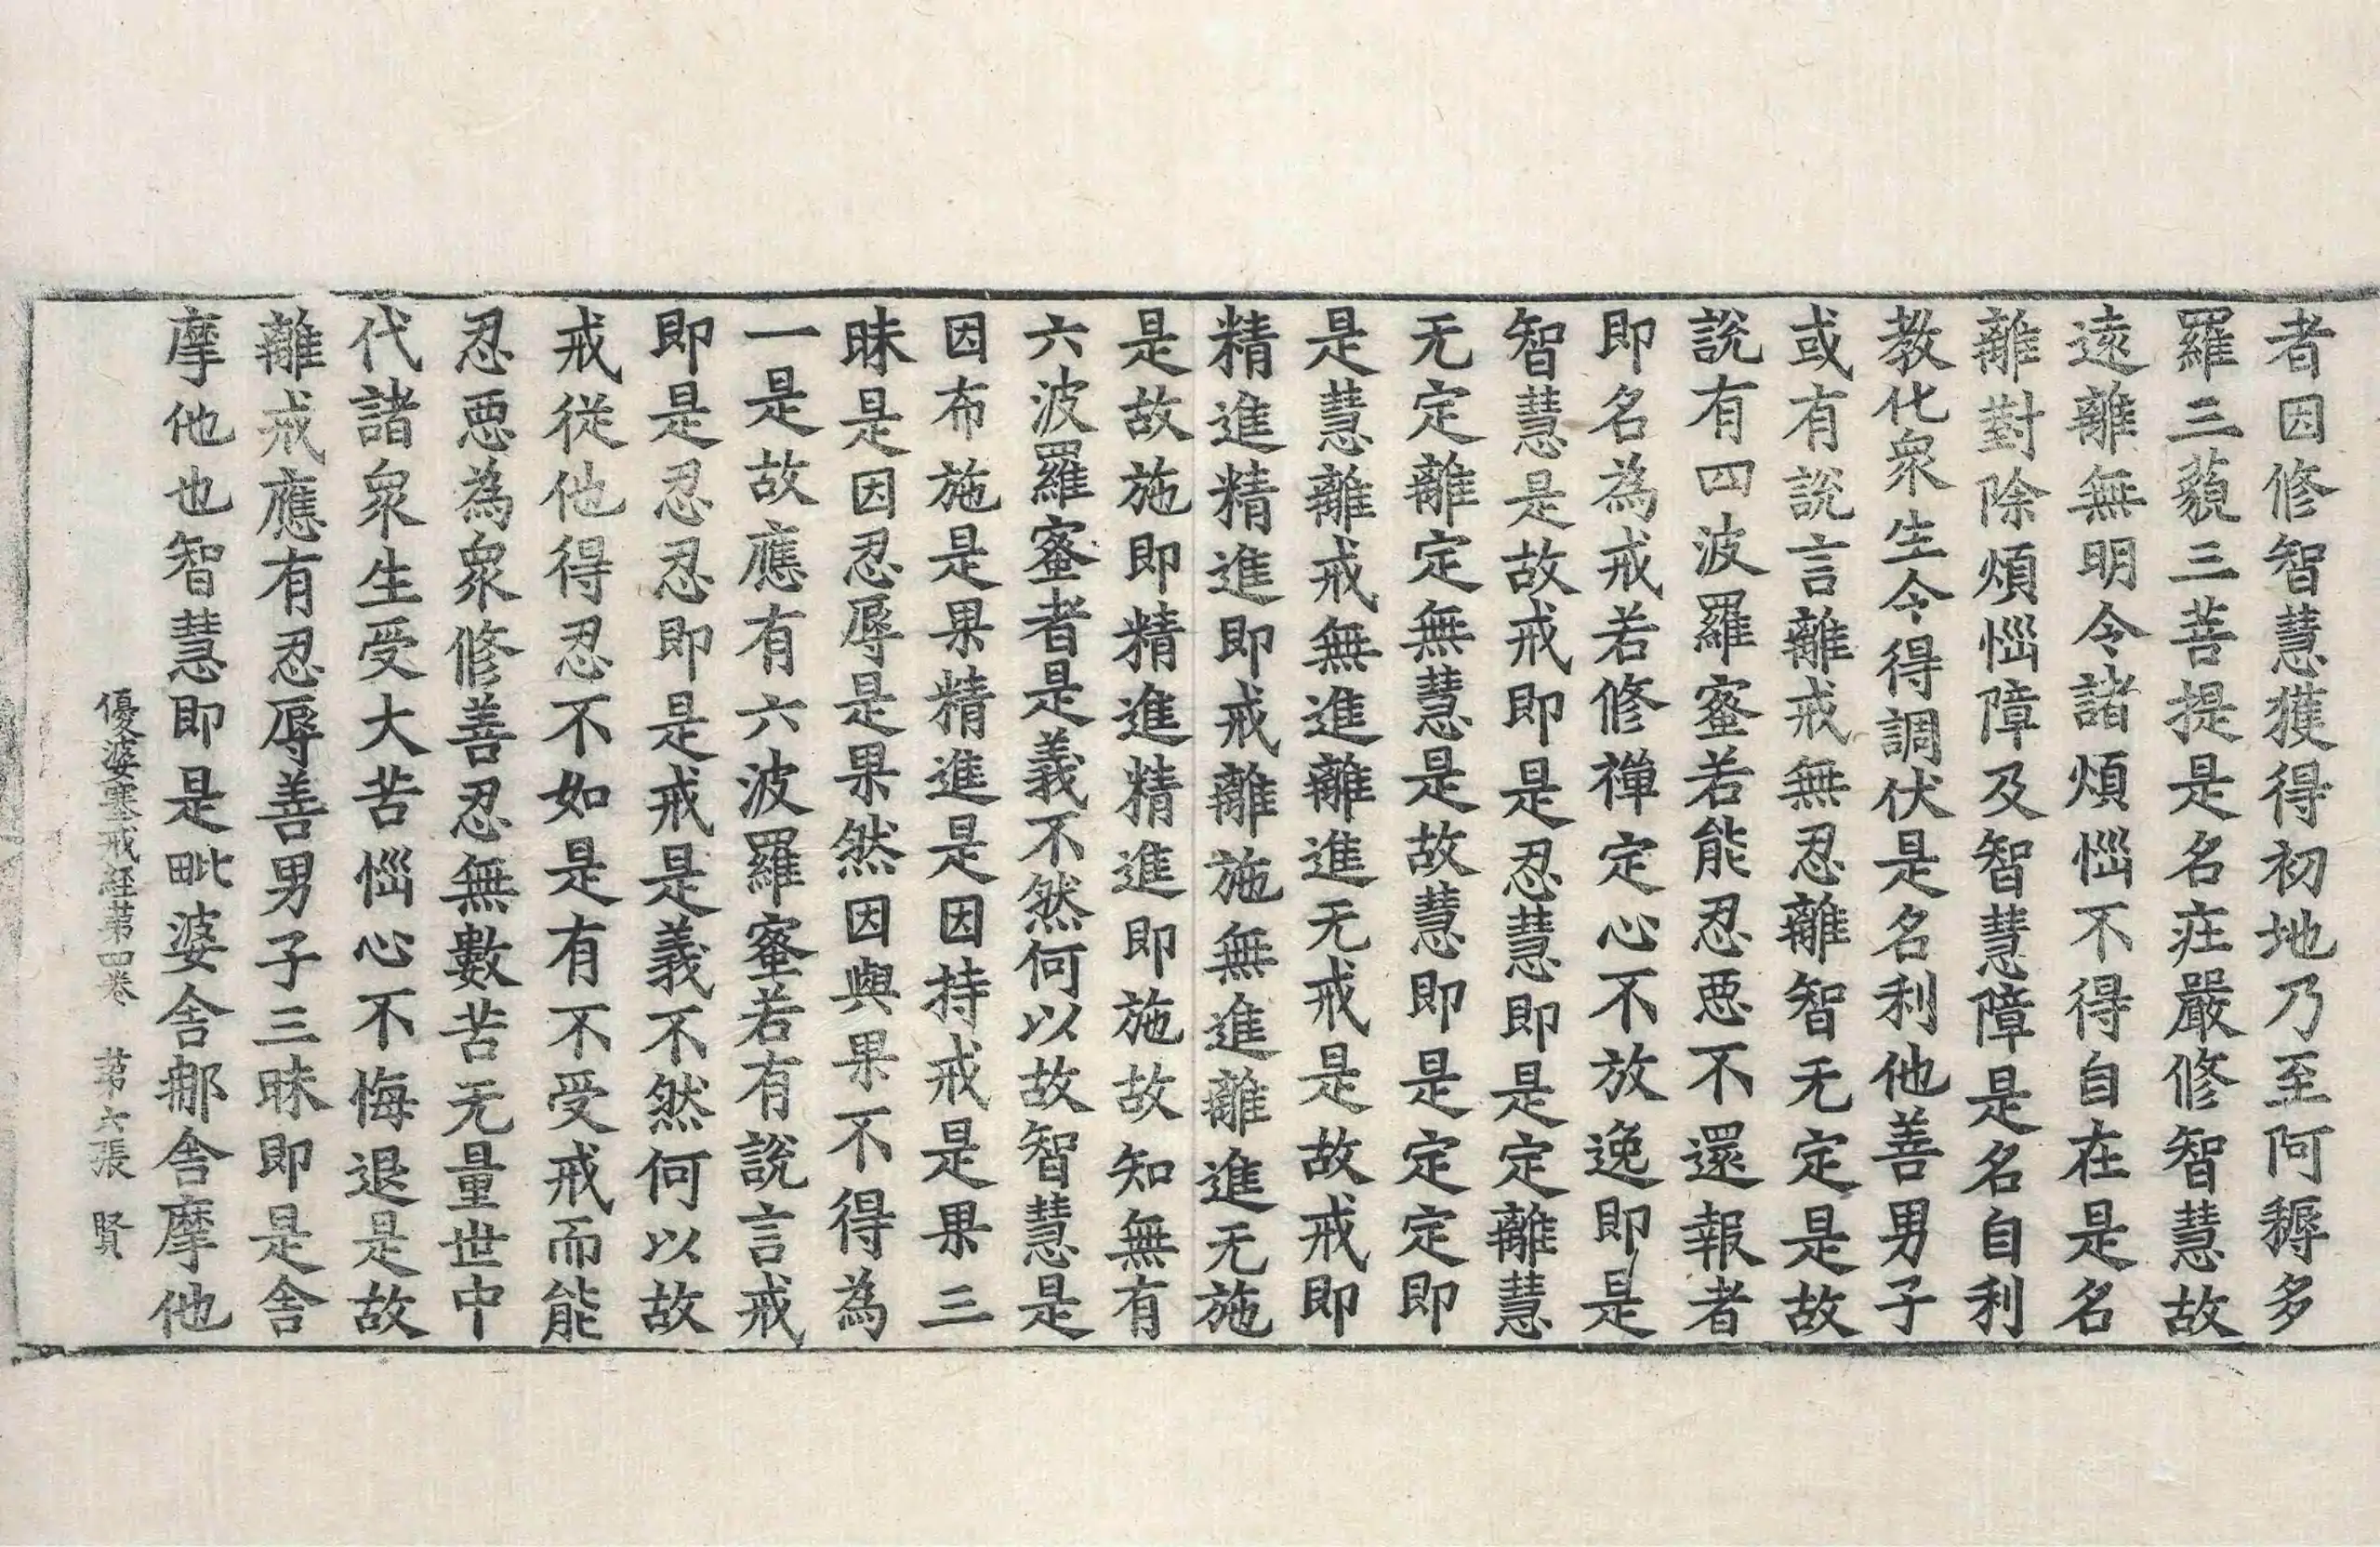 者因修智慧獲得初地乃至阿耨多
羅三藐三菩提是名疘嚴修智慧故
遠離無明令諸煩惱不得自在是名
離對除煩惱障及智慧障是名自利
教化衆生令得調伏是名利他善男子
或有說言離戒無忍離智无定是故
說有四波羅蜜若能忍悪不還報者
即名為戒若修禪定心不放逸即是
智慧是故戒即是忍慧即是定離慧
无定離定無慧是故慧即是定定即
是慧離戒無進離進无戒是故戒即
精進精進即戒離施無進離進无施
是故施即精進精進即施故知無有
六波羅蜜者是義不然何以故智慧是
因布施是果精進是因持戒是果三
昧是因忍辱是果然因與果不得為
一是故應有六波羅蜜若有說言戒
即是忍忍即是戒是義不然何以故
戒従他得忍不如是有不受戒而能
忍悪為衆修善忍無數苦无量世中
代諸衆生受大苦惱心不悔退是故
離戒應有忍辱善男子三昧即是舎
摩他也智慧即是毗婆舎那舎摩他
優婆塞戒経苐四卷　苐六張　賢